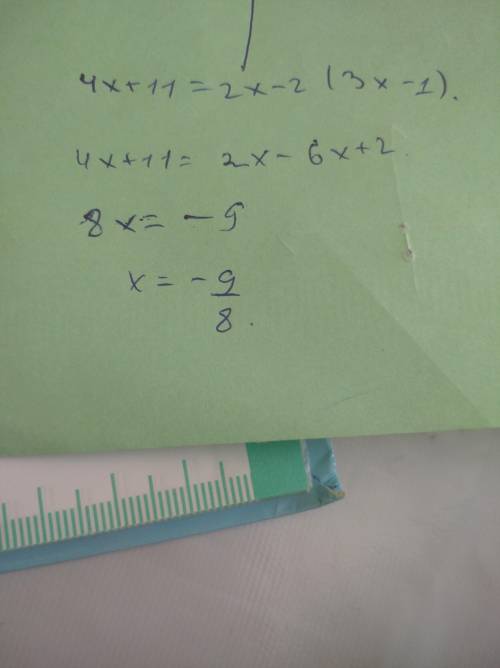 4x+11=2x-2 (3x-1).
4x+11= 2x-6x+2.
8x= -9
x= -9/8.